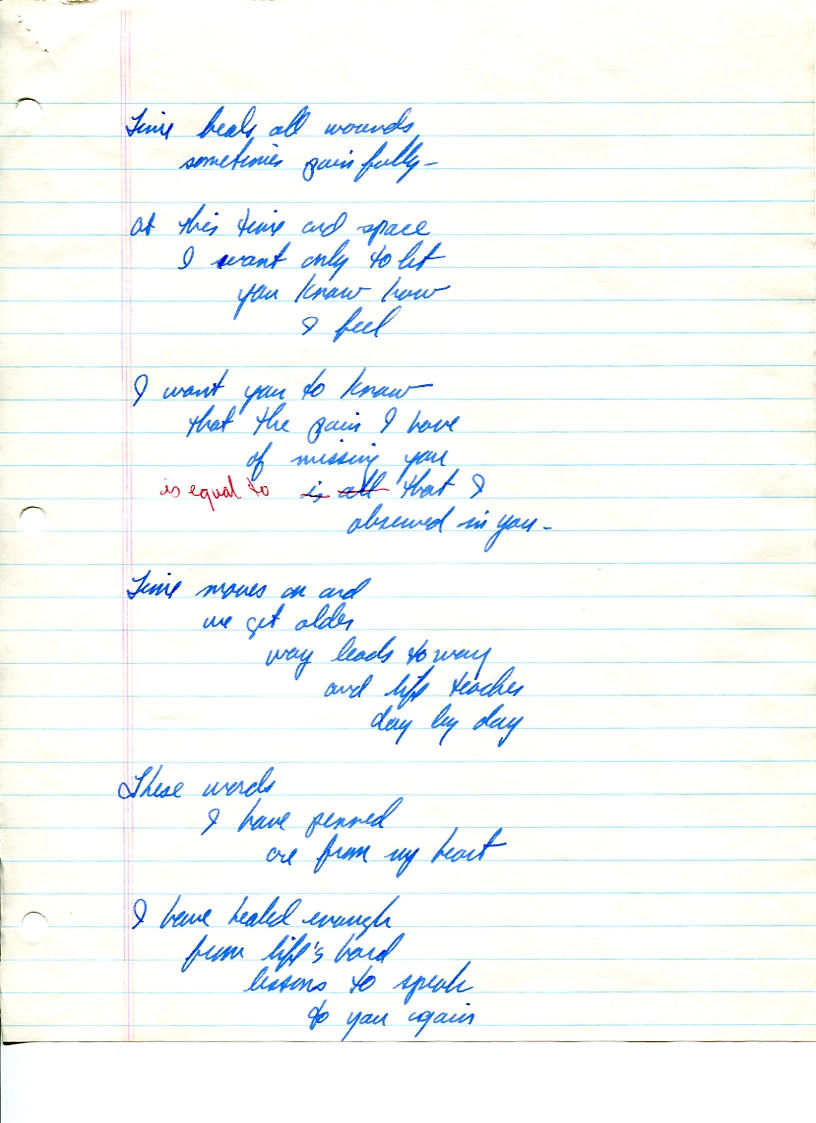 Time heals all wounds
sometimes painfully -
at this time and space
I want only to let
you know how
I feel
I want you to know
that the pain I have
of missing you
is equal to is all that I
observed in you -
Time moves on and
we get older
way leads to way
and life teaches
day by day
These words
I have penned
are from my heart
I have healed enough
from life's hard
lessons to speak
to you again